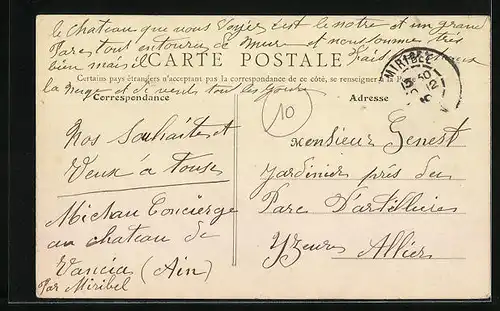 le chateau que nous voyez c'est le notre et un grand
Parc tout entouré de mure et nous somme très
bien mais il fais
CARTE POSTALE
Certains pays étrangers n'acceptant pas la correspondance de ce côté, se renseigner à la Poste
la neige et de vends tout les jours
Correspondance
Adresse
MIRIBEL
10
Nos Souhaits et
Veux à tous
Michau Concierge
au chateau de
Vancia (Ain)
Par Miribel
Monsieur Genest
Jardinier près du
Parc D'artillerie
Yzeure Allier